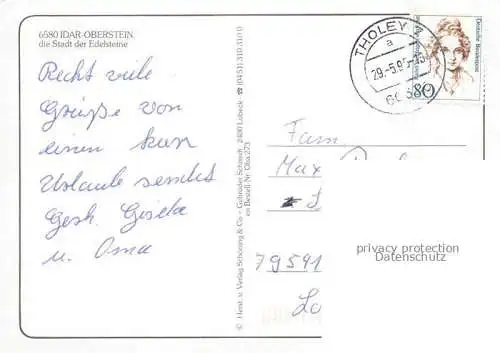 6580 IDAR-OBERSTEIN,
die Stadt der Edelsteine
Recht viele
Grüße von
einen kurz
Urlaube sendet
Gesch. Gisela
u. Oma
© Herst. u. Verlag Schöning & Co - Gebrüder Schmidt · 2400 Lübeck ☎ (0451) 31031/0
Best.-Nr. Oba 273
THOLEY
a
29.-5.9
Deutsche Bundespost
80
Fam.
Max
79591
privacy protection
Datenschutz